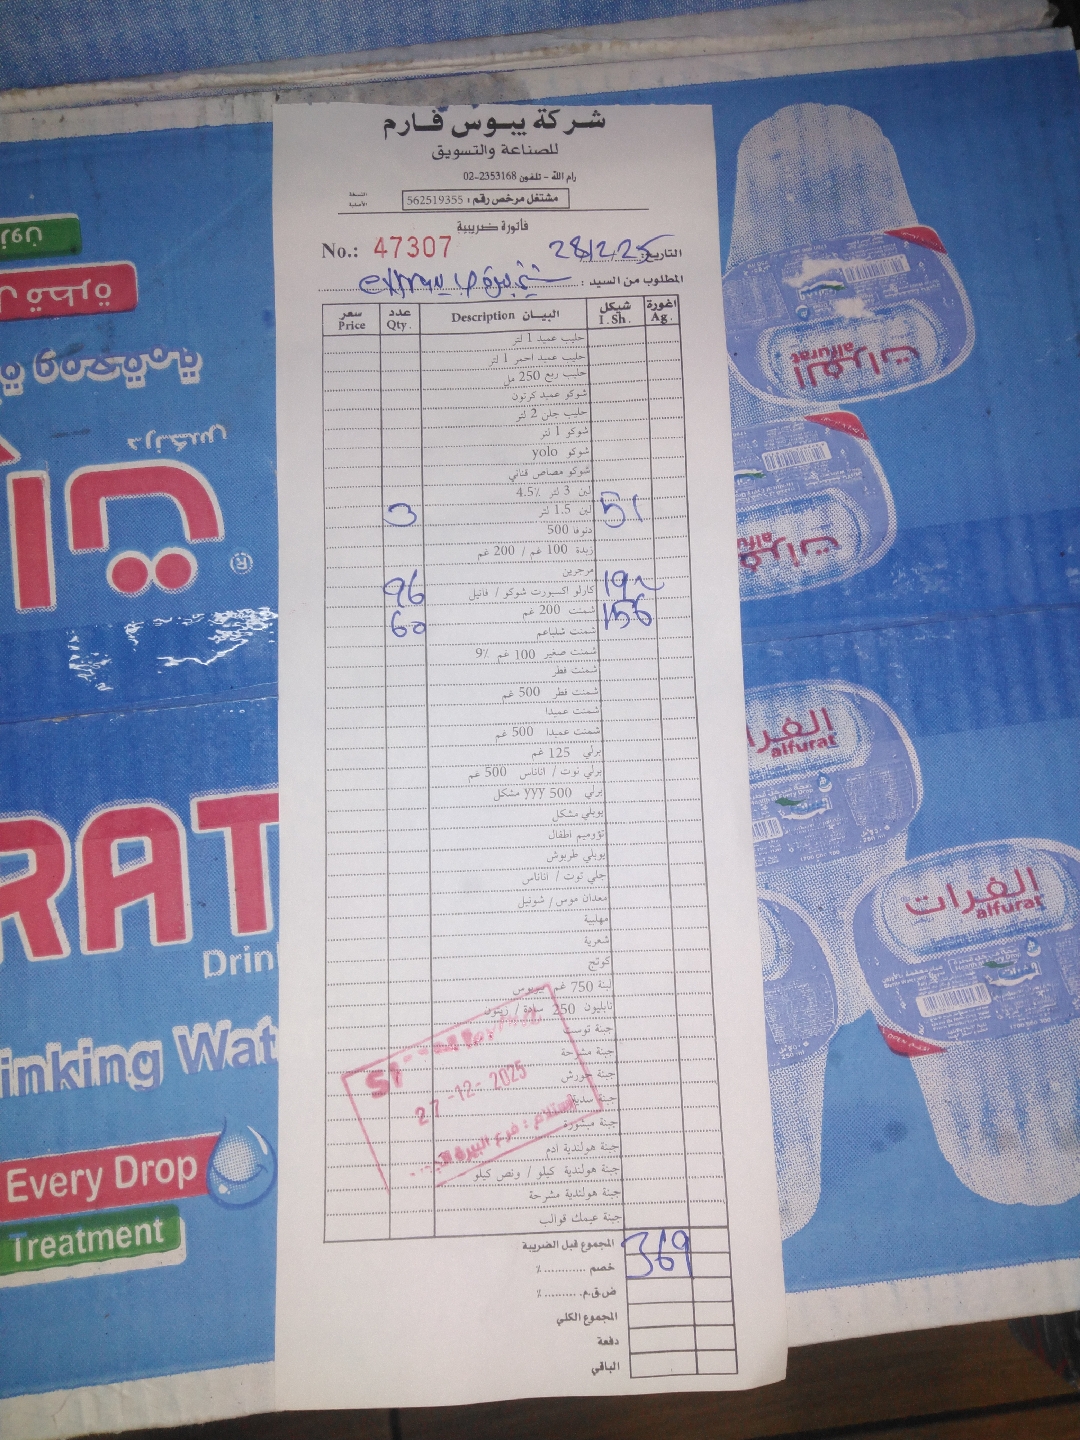 شركة يبوس فارم
للصناعة والتسويق
رام الله - تلفون 2353168-02
مشتغل مرخص رقم : 562519355
النسخة الأصلية
فاتورة ضريبية
No.: 47307
التاريخ:
المطلوب من السيد :
سعر Price عدد Qty. البيان Description شيكل I.Sh. اغورة Ag.
حليب عميد 1 لتر
حليب عميد احمر 1 لتر
حليب ربع 250 مل
شوكو عميد كرتون
حليب جلن 2 لتر
شوكو 1 لتر
شوكو yolo
شوكو مصاص قناني
لبن 3 لتر 4.5٪
3 لبن 1.5 لتر 51
دنوفا 500
زبدة 100 غم / 200 غم
مرجرين
96 كارلو اكسبورت شوكو / فانيل 192
60 شمنت 200 غم 156
شمنت شلباعم
شمنت صغير 100 غم 9٪
شمنت فطر
شمنت فطر 500 غم
شمنت عميدا
شمنت عميدا 500 غم
برلي 125 غم
برلي توت / اناناس 500 غم
برلي 500 yyy مشكل
يوبلي مشكل
تؤوميم اطفال
يوبلي طربوش
جلي توت / اناناس
معدان موس / شونيل
مهلبية
شعرية
كوتج
لبنة 750 غم يبوس
نابليون 250 سادة / زيتون
جبنة توست
جبنة مشرحة
جبنة جورش
جبنة سدية
جبنة مبشورة
جبنة هولندية ادم
جبنة هولندية كيلو / ونص كيلو
جبنة هولندية مشرحة
جبنة عيمك قوالب
27-12-2025
استلام : فرع البيرة
المجموع قبل الضريبة 369
خصم ........... ٪
ض.ق.م. ......... ٪
المجموع الكلي
دفعة
الباقي
RAT
Drin
inking Wat
Every Drop
Treatment
الفرات
alfurat
الفرات
alfurat